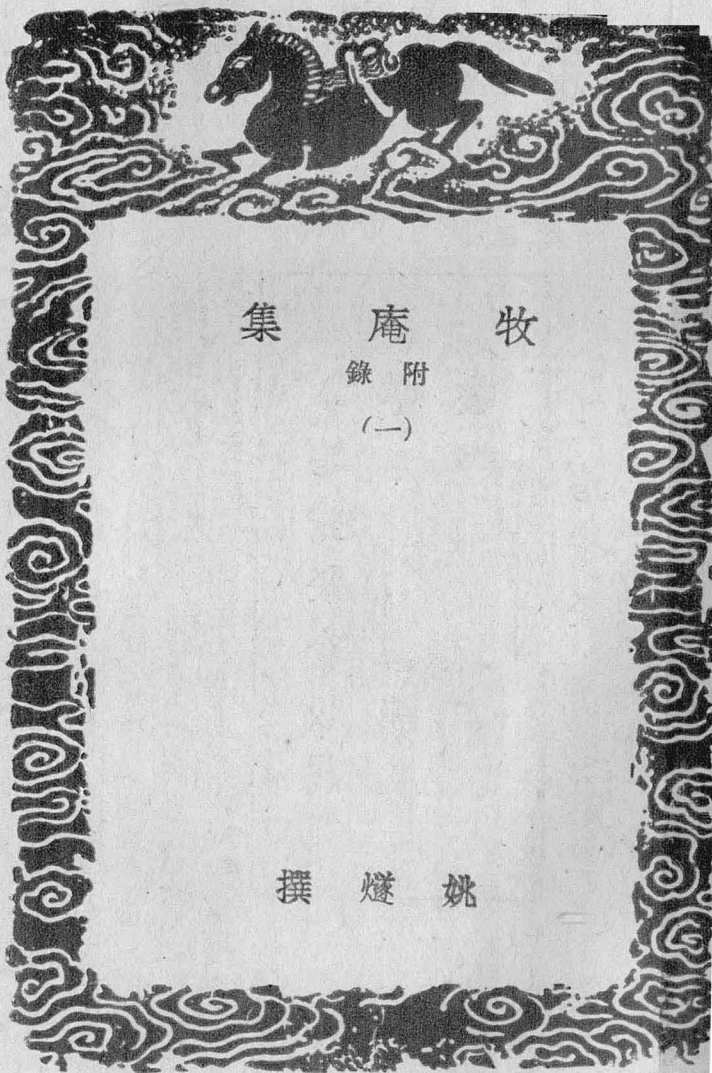 牧庵集
附錄
(一)
姚燧撰